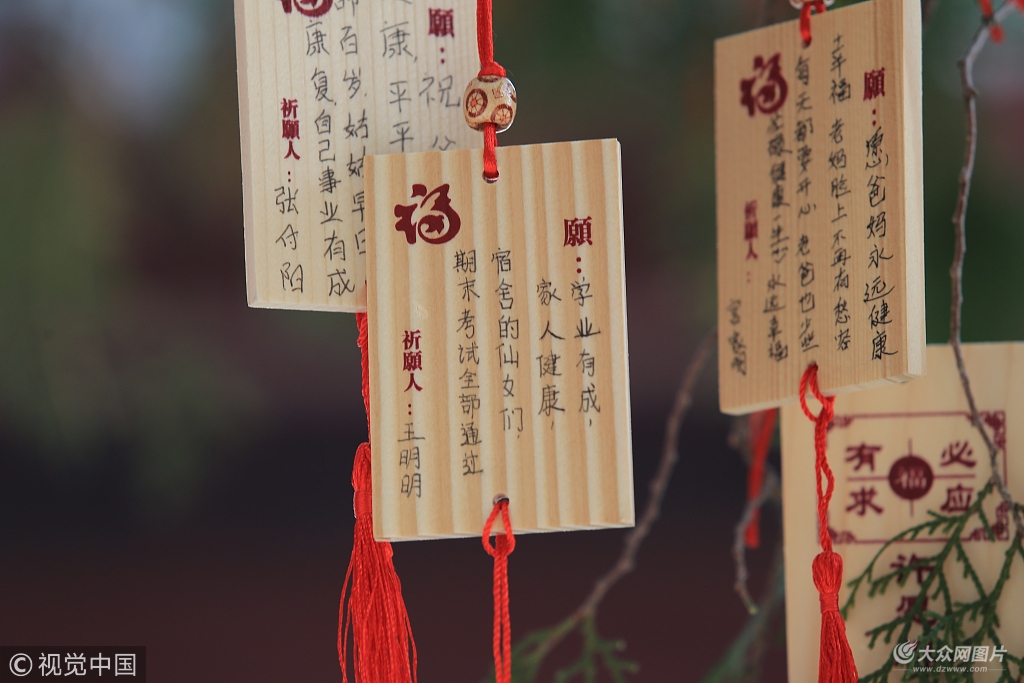 願：祝
康，平平
百岁，姑姑早日
康复，自己事业有成
祈願人：张付阳
福
願：学业有成，
家人健康，
宿舍的仙女们，
期末考试全部通过
祈願人：王明明
福
願：愿爸妈永远健康
幸福 老妈脸上不再有愁容
每天都要开心 老爸也少些
健康 一生 永远幸福
祈願人：
有求
福
必应
许愿
© 视觉中国
大众网图片
www.dzwww.com